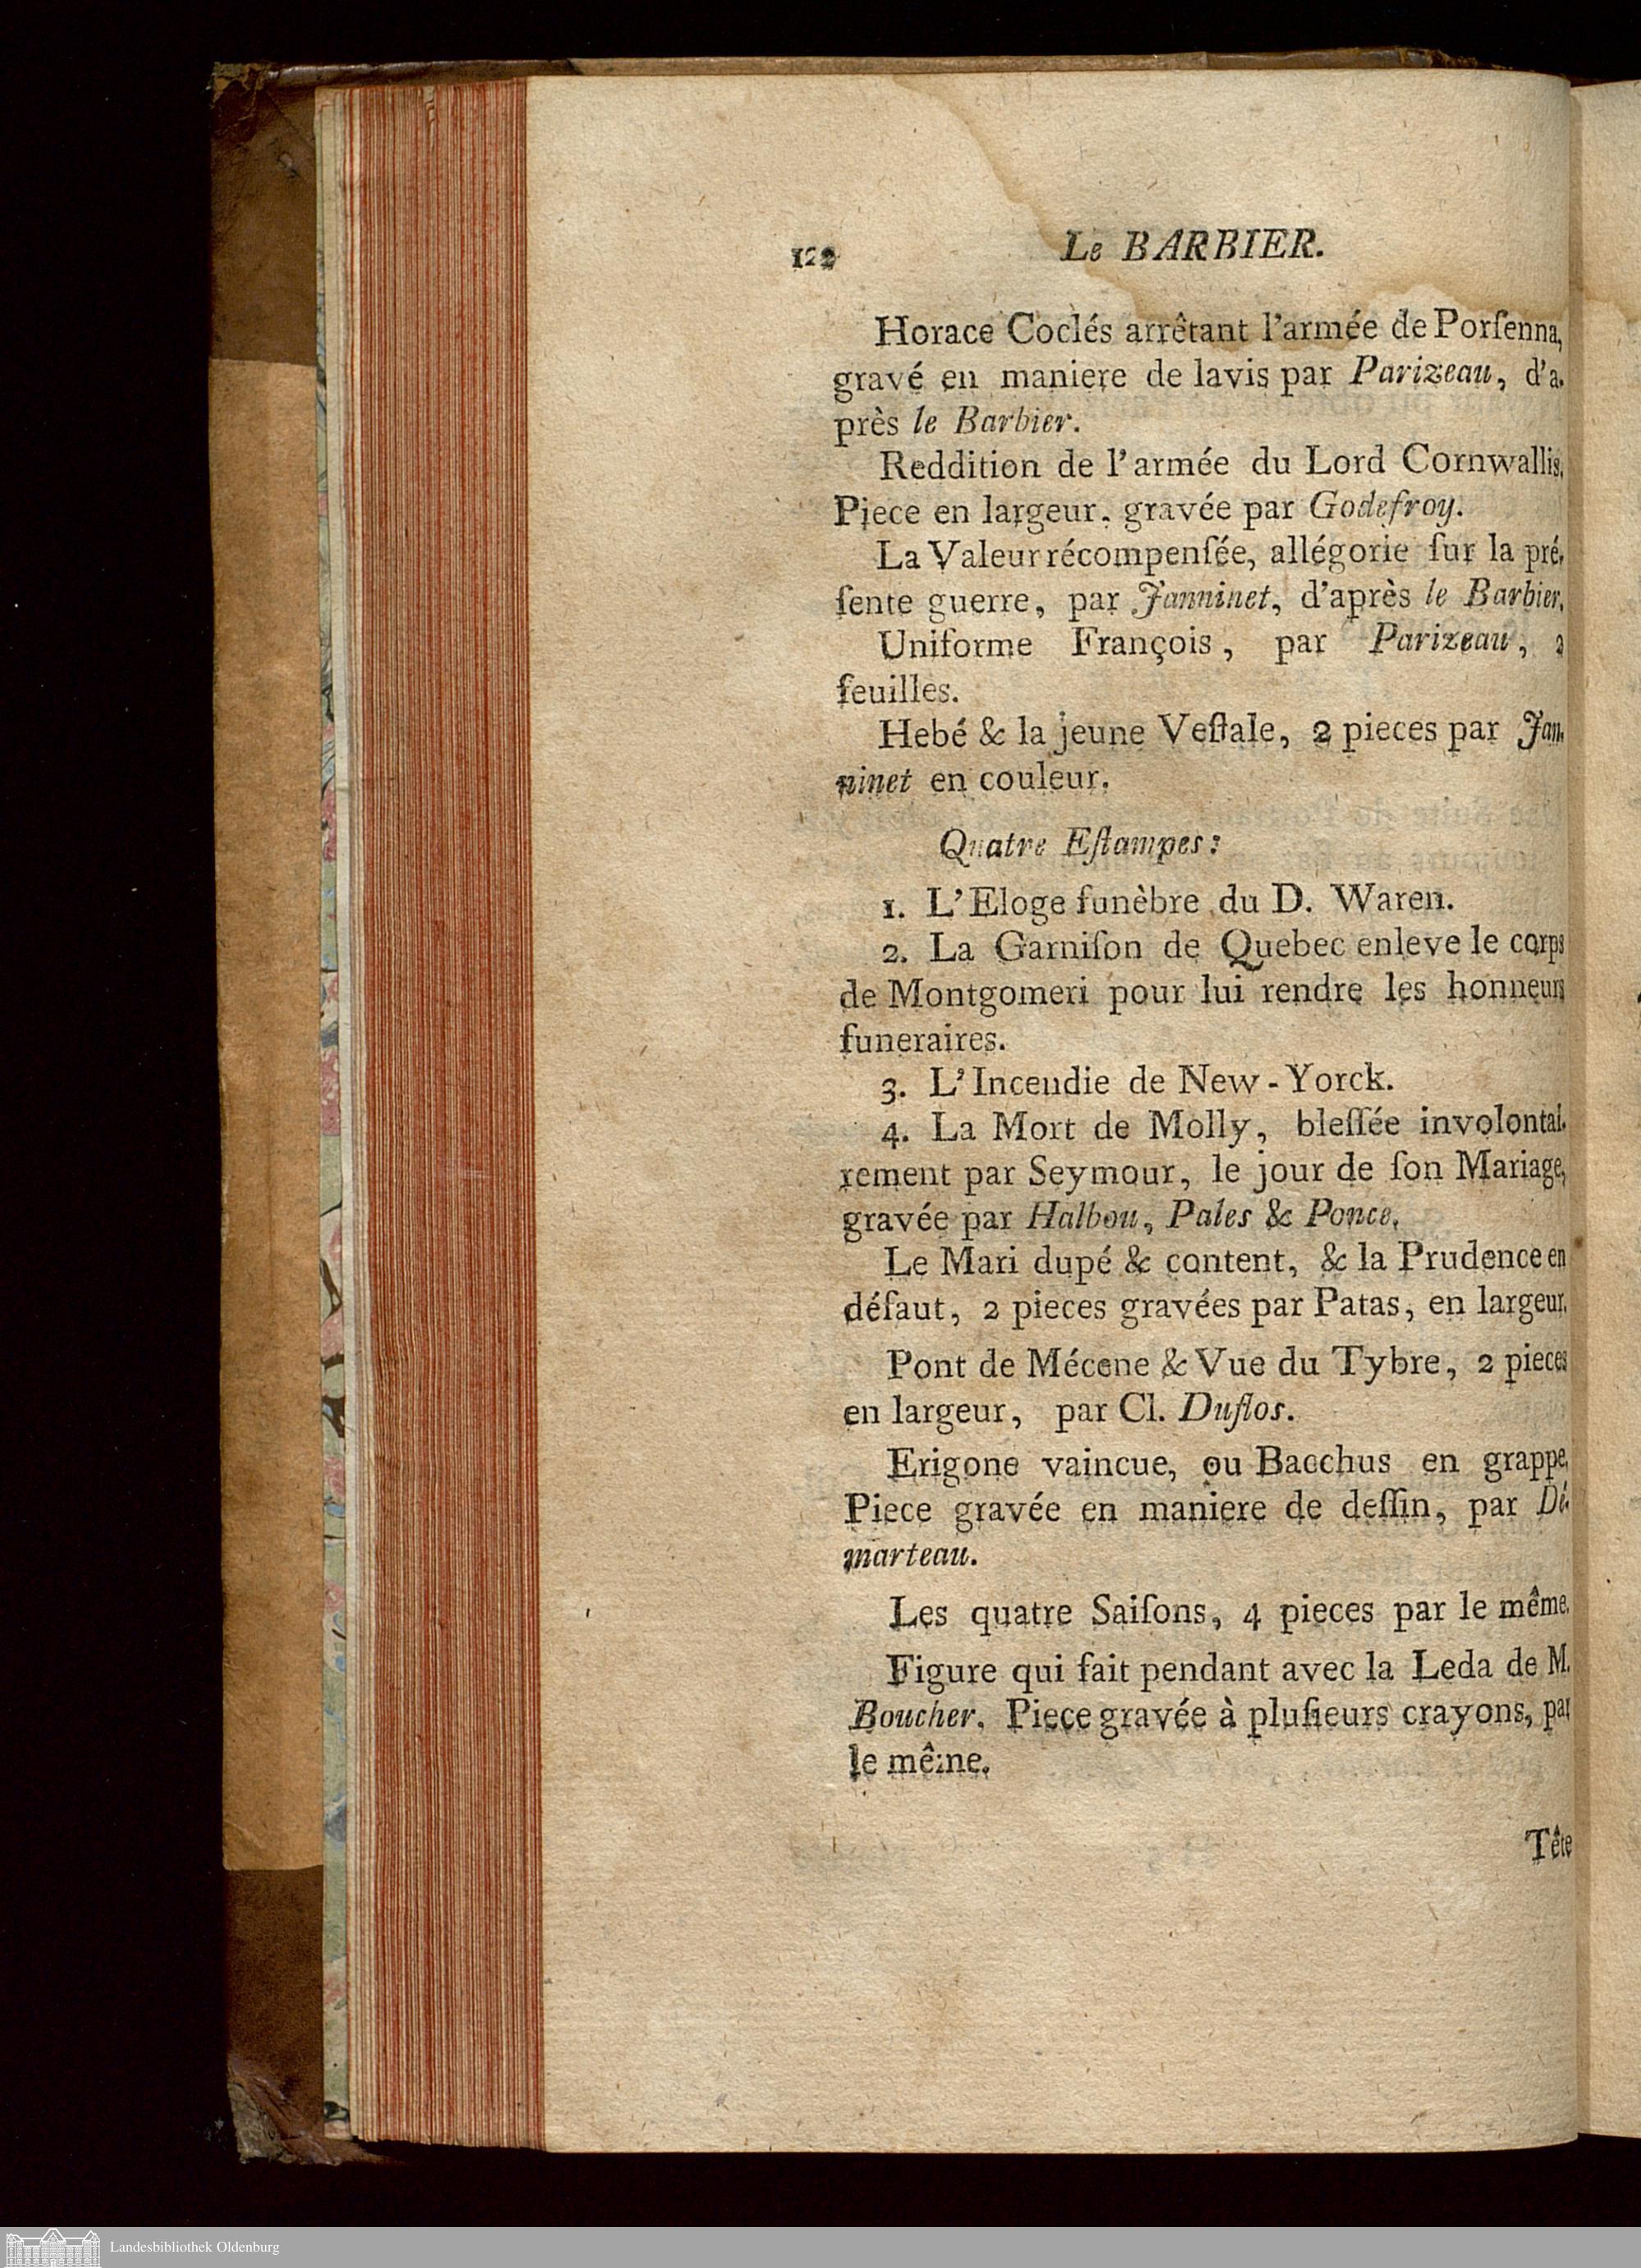 122 Le BARBIER.
Horace Coclés arrêtant l'armée de Porſenna,
gravé en maniere de lavis par Parizeau, d'a-
près le Barbier.
Reddition de l'armée du Lord Cornwallis.
Piece en largeur, gravée par Godefroy.
La Valeur récompenſée, allégorie ſur la pré-
ſente guerre, par Janninet, d'après le Barbier.
Uniforme François, par Parizeau, 2
feuilles.
Hebé & la jeune Veſtale, 2 pieces par Jan-
ninet en couleur.
Quatre Eſtampes:
1. L'Eloge funèbre du D. Waren.
2. La Garniſon de Quebec enleve le corps
de Montgomeri pour lui rendre les honneurs
funeraires.
3. L'Incendie de New-Yorck.
4. La Mort de Molly, bleſſée involontai-
rement par Seymour, le jour de ſon Mariage,
gravée par Halbou, Pales & Ponce.
Le Mari dupé & content, & la Prudence en
défaut, 2 pieces gravées par Patas, en largeur.
Pont de Mécene & Vue du Tybre, 2 pieces
en largeur, par Cl. Duflos.
Erigone vaincue, ou Bacchus en grappe.
Piece gravée en maniere de deſſin, par Dé-
marteau.
Les quatre Saiſons, 4 pieces par le même.
Figure qui fait pendant avec la Leda de M.
Boucher. Piece gravée à pluſieurs crayons, par
le même.
Tête
Landesbibliothek Oldenburg